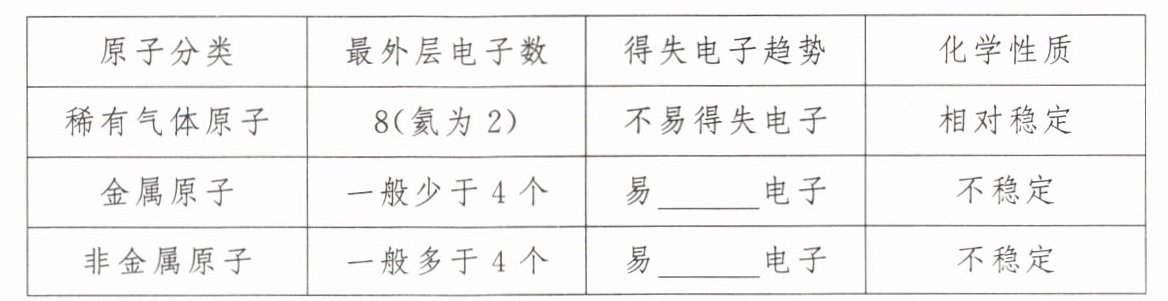 原子分类 最外层电子数 得失电子趋势 化学性质
稀有气体原子 8(氦为 2) 不易得失电子 相对稳定
金属原子 一般少于 4 个 易______电子 不稳定
非金属原子 一般多于 4 个 易______电子 不稳定